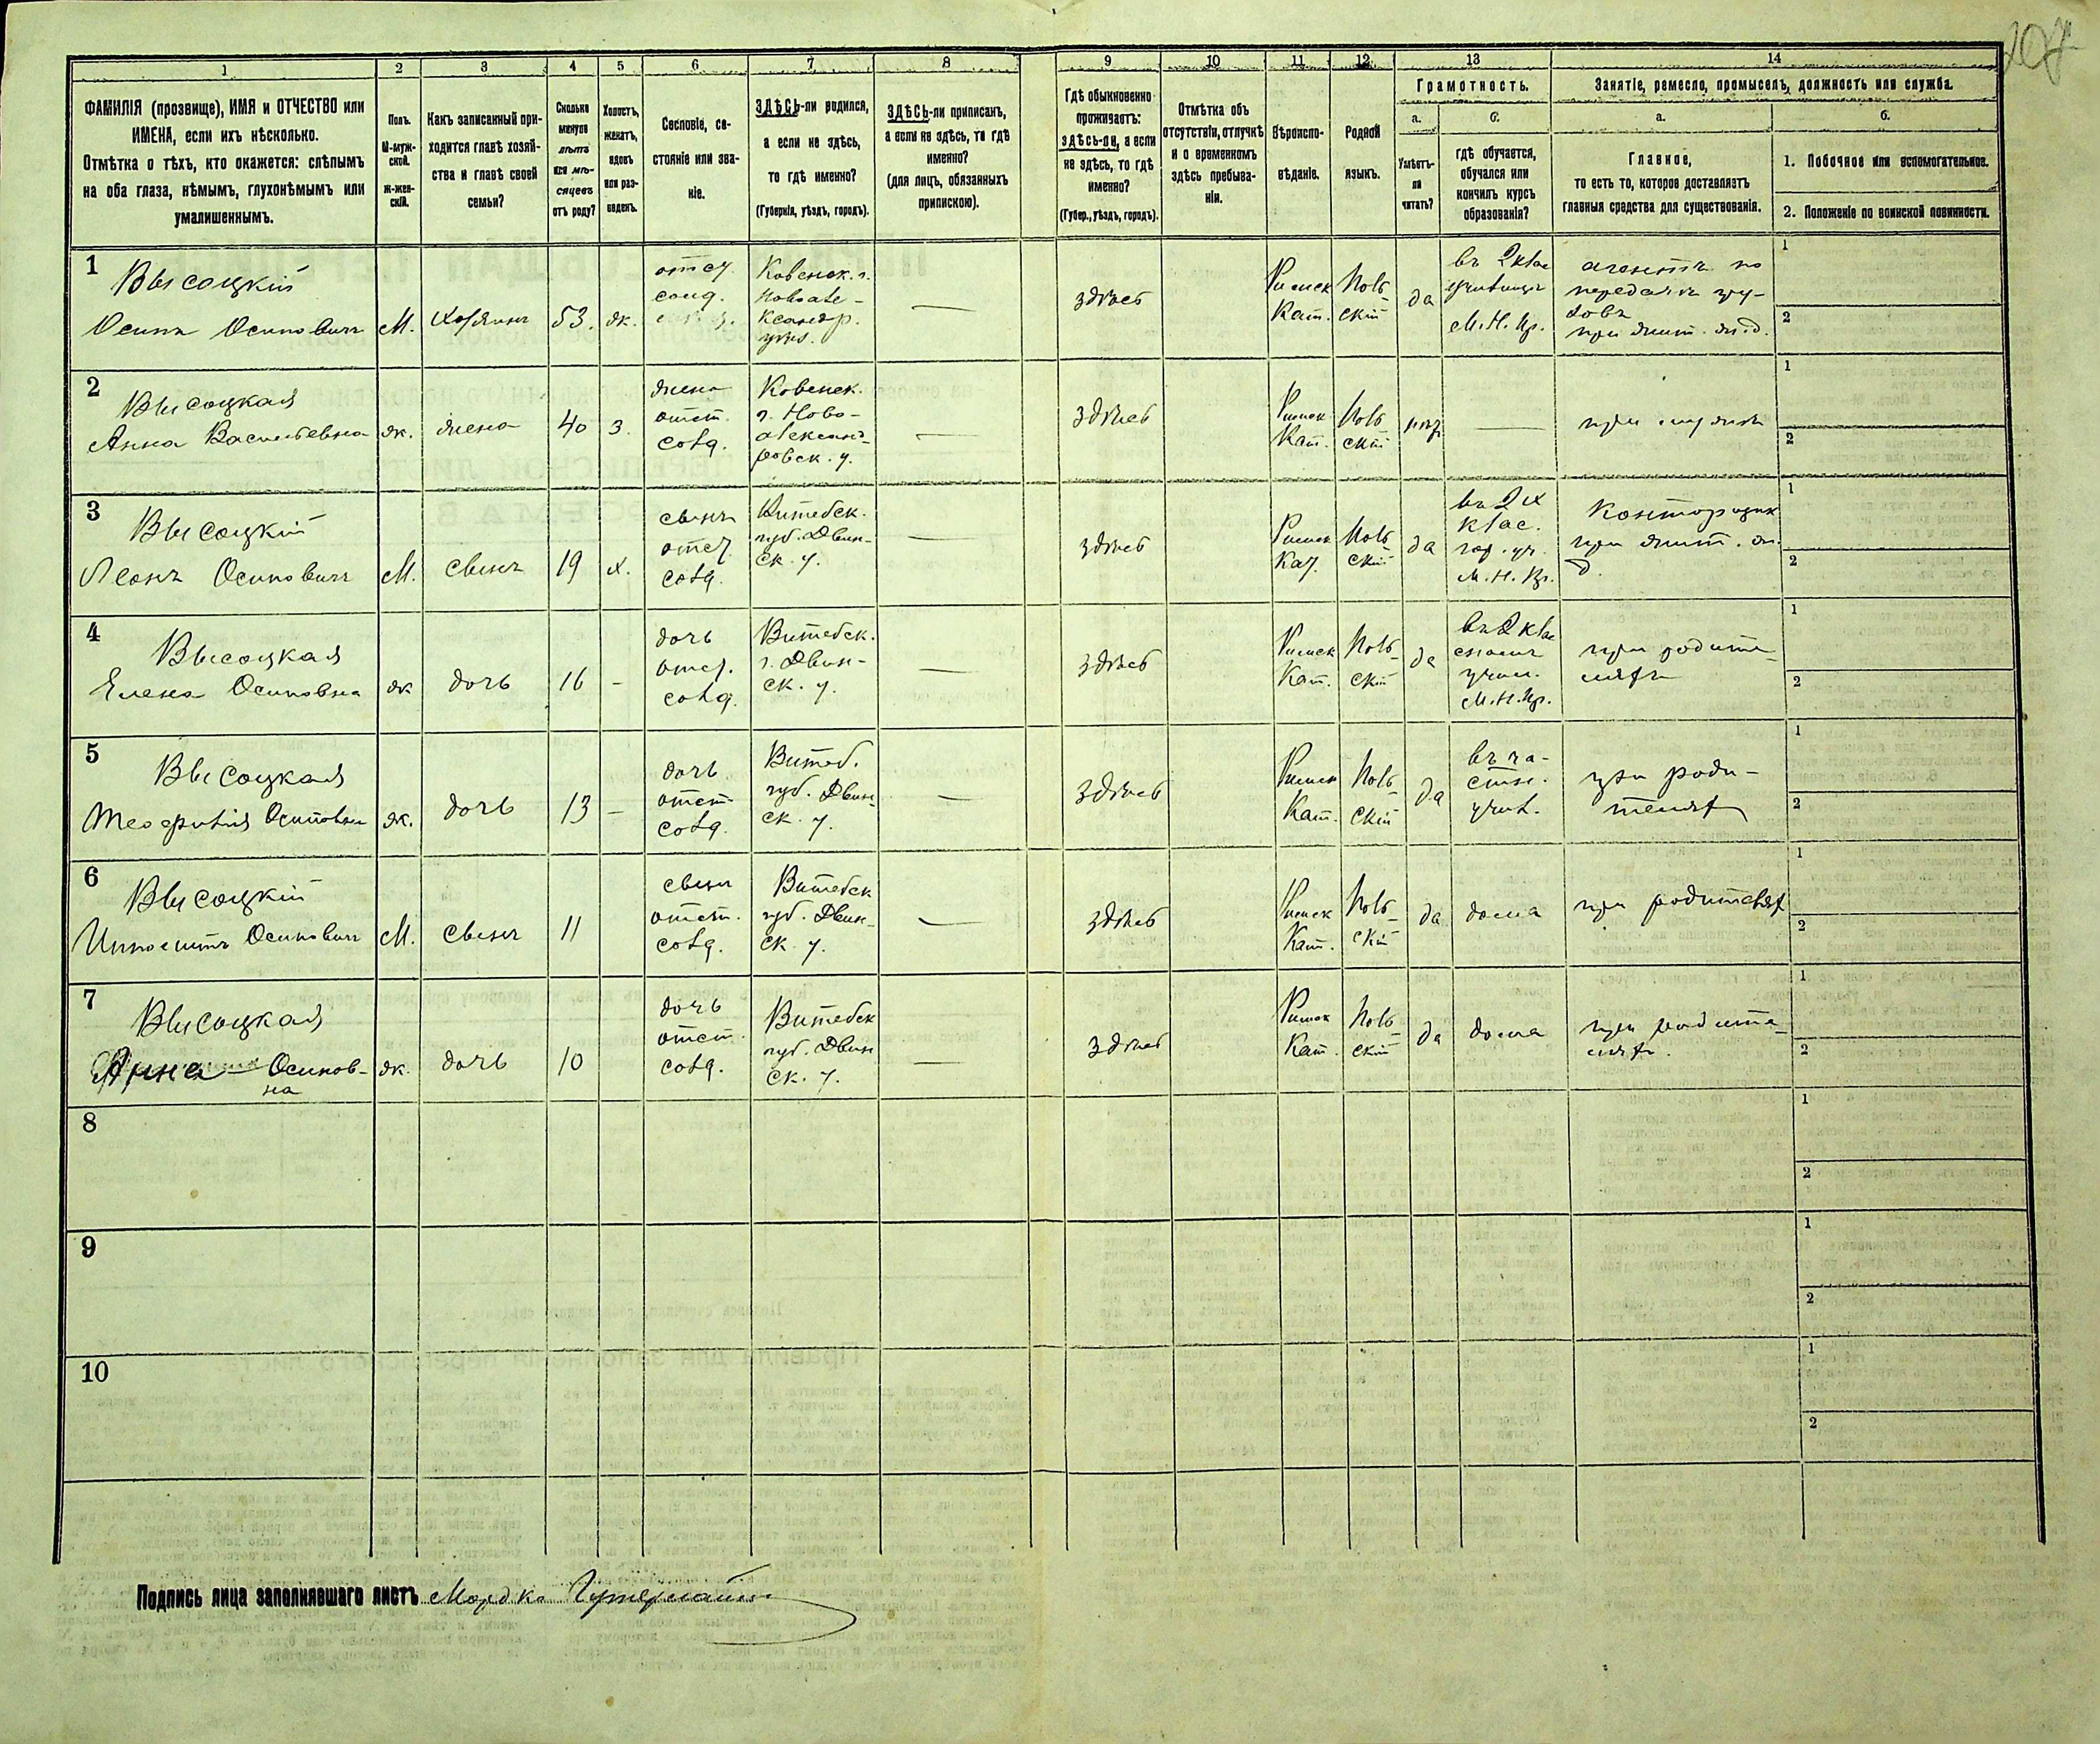 107
1 2 3 4 5 6 7 8 9 10 11 12 13 14
ФАМИЛІЯ (прозвище), ИМЯ и ОТЧЕСТВО или
ИМЕНА, если ихъ нѣсколько.
Отмѣтка о тѣхъ, кто окажется: слѣпымъ
на оба глаза, нѣмымъ, глухонѣмымъ или
умалишеннымъ.
Полъ.
М-муж-
ской.
Ж-жен-
скій.
Какъ записанный при-
ходится главѣ хозяй-
ства и главѣ своей
семьи?
Сколько
минуло
лѣтъ
или мѣ-
сяцевъ
отъ роду?
Холостъ,
женатъ,
вдовъ
или раз-
веденъ.
Сословіе, со-
стояніе или зва-
ніе.
ЗДѢСЬ-ли родился,
а если не здѣсь,
то гдѣ именно?
(Губернія, уѣздъ, городъ).
ЗДѢСЬ-ли приписанъ,
а если не здѣсь, то гдѣ
именно?
(для лицъ, обязанныхъ
припискою).
Гдѣ обыкновенно
проживаетъ:
ЗДѢСЬ-ли, а если
не здѣсь, то гдѣ
именно?
(Губер., уѣздъ, городъ).
Отмѣтка объ
отсутствіи, отлучкѣ
и о временномъ
здѣсь пребыва-
ніи.
Вѣроиспо-
вѣданіе.
Родной
языкъ.
Грамотность.
а.
Умѣетъ-
ли
читать?
б.
гдѣ обучается,
обучался или
кончилъ курсъ
образованія?
Занятіе, ремесло, промыселъ, должность или служба.
а.
Главное,
то есть то, которое доставляетъ
главныя средства для существованія.
б.
1. Побочное или вспомогательное.
2. Положеніе по воинской повинности.
1
Высоцкій
Осипъ Осиповичъ
М.
Хозяинъ
53.
ж.
отст.
солд.
Ковенск. г.
Новоале-
ксандр.
уѣз.
—
здѣсь
Римск
Кат.
Поль
скій
да
въ 2 клас
училищѣ
М. Н. Пр.
агентъ по
передачѣ гру-
зовъ
при жит. ж. д.
1
2
2
Высоцкая
Анна Васильевна
ж.
жена
40
з.
жена
отст.
солд.
Ковенск.
г. Ново-
александ-
ровск. у.
—
здѣсь
Римск
Кат.
Поль
скій
—
при мужѣ
1
2
3
Высоцкій
Леонъ Осиповичъ
М.
сынъ
19
х.
сынъ
отст.
солд.
Витебск.
губ. Двин-
ск. у.
—
здѣсь
Римск
Кат.
Поль
скій
да
въ 2 х
клас.
гор. уч.
М. Н. Пр.
Конторщик
при жит. ж.
д.
1
2
4
Высоцкая
Елена Осиповна
ж
дочь
16
-
дочь
отст.
солд.
Витебск.
г. Двин-
ск. у.
—
здѣсь
Римск
Кат.
Поль
скій
да
въ 2 клас
училищ.
М. Н. Пр.
при родите-
ляхъ
1
2
5
Высоцкая
Теофилія Осиповна
ж.
дочь
13
-
дочь
отст.
солд.
Витеб.
губ. Двин-
ск. у.
—
здѣсь
Римск
Кат.
Поль
скій
да
въ ча-
стн.
учил.
при роди-
телях
1
2
6
Высоцкій
Ипполитъ Осиповичъ
М.
сынъ
11
сынъ
отст.
солд.
Витебск
губ. Двин-
ск. у.
—
здѣсь
Римск
Кат.
Поль
скій
да
дома
при родителях
1
2
7
Высоцкая
Анна Осипов-
на
ж.
дочь
10
дочь
отст.
солд.
Витебск
губ. Двин
ск. у.
—
здѣсь
Римск
Кат.
Поль
скій
да
дома
при родите-
ляхъ.
1
2
8
1
2
9
1
2
10
1
2
Подпись лица заполнявшаго листъ Мордка Гутерманъ